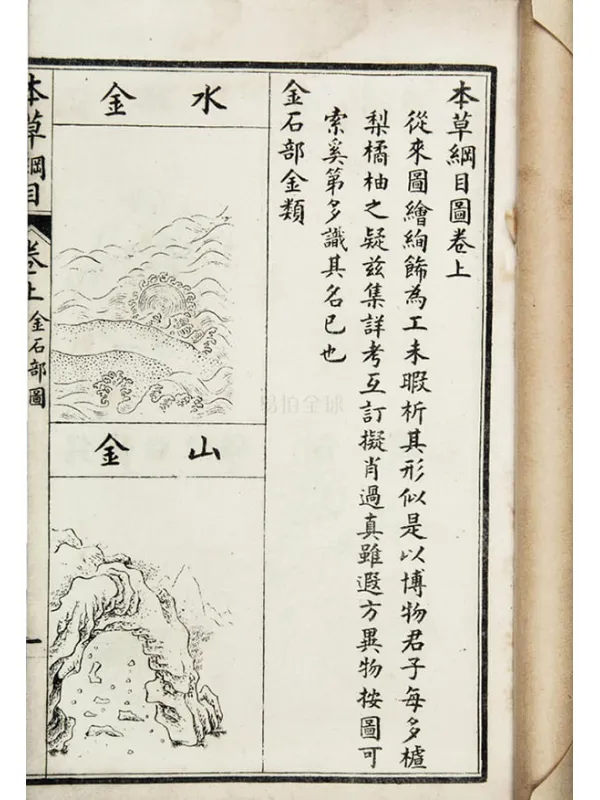 本草綱目圖卷上
從來圖繪絢飾為工未暇析其形似是以博物君子每多樝
梨橘柚之疑茲集詳考互訂擬肖過真雖遐方異物按圖可
索奚第多識其名已也
金石部金類
水金
山金
本草綱目
卷上
金石部圖
一
易拍全球